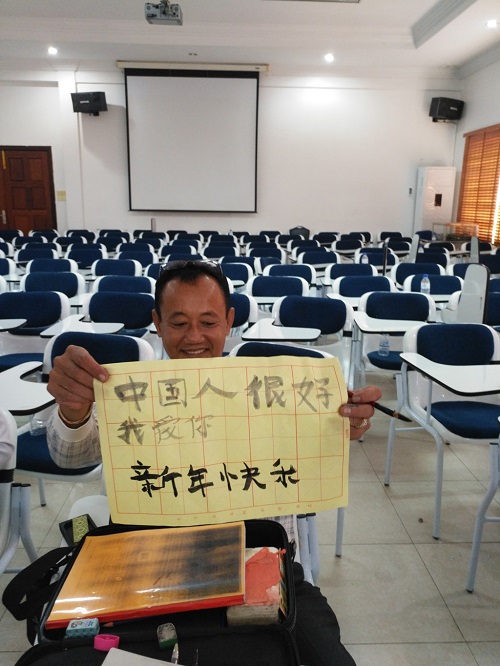 中国人很好
我爱你
新年快乐